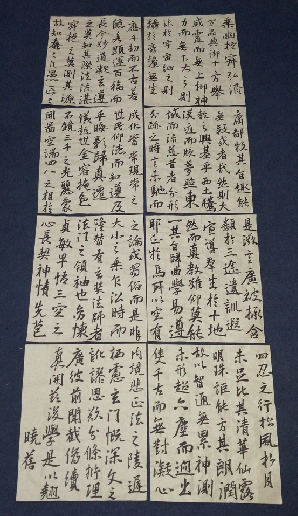 乘幽控寂弘濟
万品典御十方舉
威靈而無上抑神
力而無下大之則
弥於宇宙細之則
攝於豪釐無滅無生
歷千劫而不古若
隱若顯運百福而
長今妙道凝玄遵
之莫知其際法流湛
寂挹之莫測其源
故知蠢蠢凡愚區區
庸鄙投其旨趣能
無疑或者哉然則大
教之興基乎西土騰
漢庭而皎夢照東
域而流慈昔者分形
分迹之時言未馳而
成化當常現常之
世民仰德而知遵及
乎晦影歸真遷
儀越世金容掩色
不鏡三千之光麗象
開圖空端四八之相於
是微言廣被拯含
類於三途遺訓遐
宣導群生於十地
然而真教難仰莫能
一其旨歸曲學易遵
耶正於焉紛糾所以空有
之論或習俗而是非
大小之乘乍沿時而
隆替有玄奘法師者
法門之領袖也幼懷
貞敏早悟三空之
心長契神情先苞
四忍之行松風水月
未足比其清華仙露
明珠詎能方其朗潤
故以智通無累神測
未形超六塵而迥出
隻千古而無對凝心
內境悲正法之陵遲
栖慮玄門慨深文之
訛謬思欲分條析理
廣彼前聞截偽續
真開茲後學是以翹
曉蓓